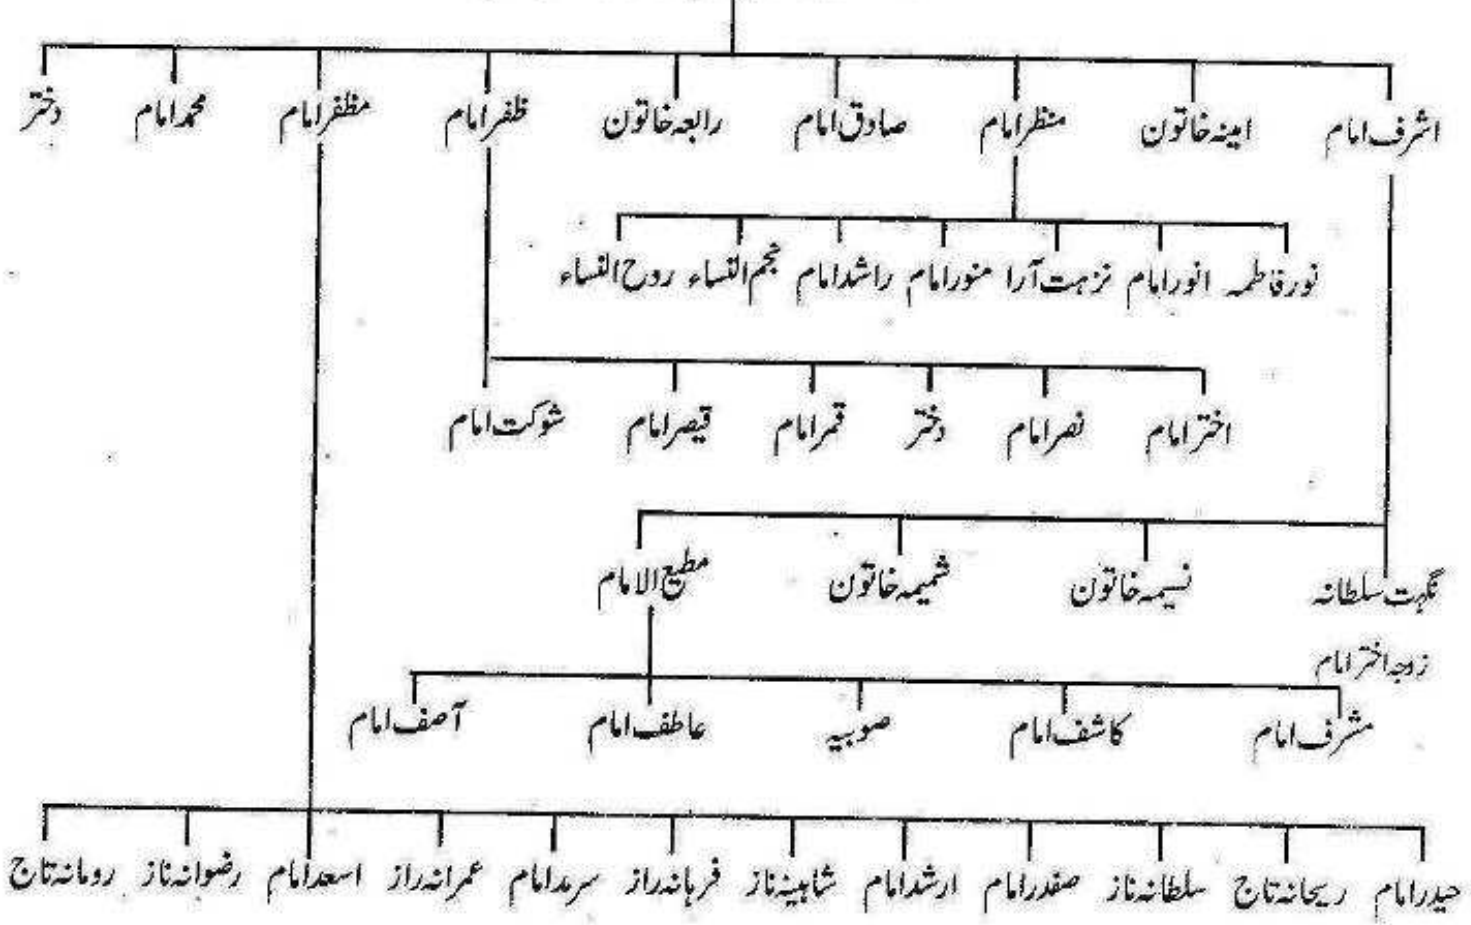 اشرف امام امینہ خاتون منظر امام صادق امام رابعہ خاتون ظفر امام مظفر امام محمد امام دختر
نور فاطمہ انور امام نزہت آرا منور امام راشد امام نجم النساء روح النساء
اختر امام نصر امام دختر قمر امام قیصر امام شوکت امام
نگہت سلطانہ نسیمہ خاتون شمیمہ خاتون مطیع الامام
زوجہ اختر امام
مشرف امام کاشف امام صوبیہ عاطف امام آصف امام
حیدر امام ریحانہ تاج سلطانہ ناز صفدر امام ارشد امام شاہینہ ناز فرہانہ راز سرمد امام عمرانہ راز اسعد امام رضوانہ ناز رومانہ تاج